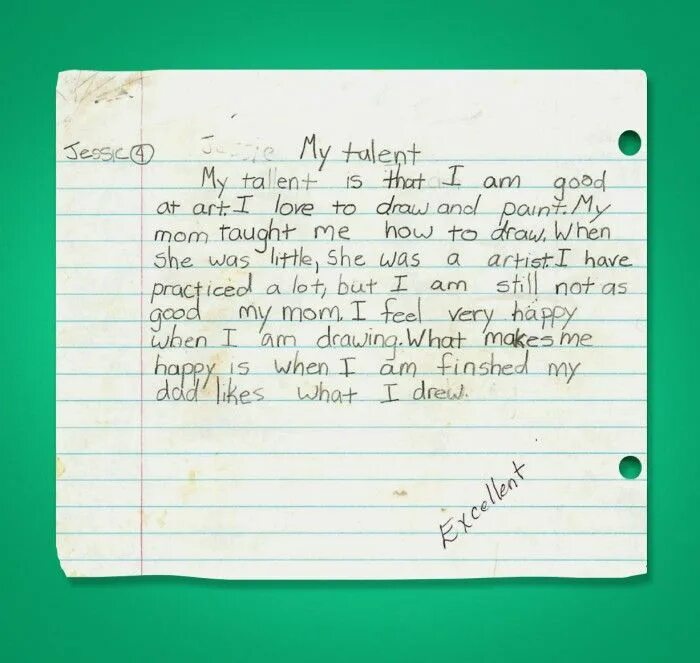 Jessie 4
Jessie My talent
My tallent is that I am good
at art. I love to draw and paint. My
mom taught me how to draw. When
she was little, she was a artist. I have
practiced a lot, but I am still not as
good my mom. I feel very happy
when I am drawing. What makes me
happy is when I am finshed my
dad likes what I drew.
Excellent